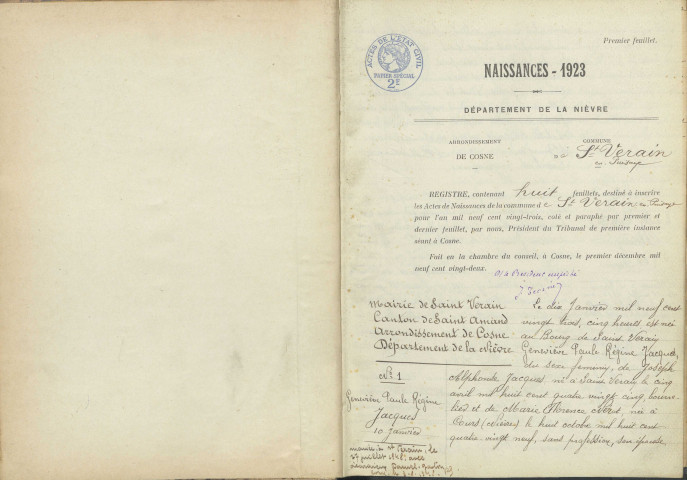 Premier feuillet.
ACTES DE L'ETAT CIVIL
PAPIER SPÉCIAL
2E
NAISSANCES - 1923
DÉPARTEMENT DE LA NIÈVRE
ARRONDISSEMENT
DE COSNE
COMMUNE
St Verain
REGISTRE, contenant huit feuillets, destiné à inscrire
les Actes de Naissances de la commune de St Verain en
pour l'an mil neuf cent vingt-trois, coté et paraphé par premier et
dernier feuillet, par nous, Président du Tribunal de première instance
séant à Cosne.
Fait en la chambre du conseil, à Cosne, le premier décembre mil
neuf cent vingt-deux.
Président
Mairie de Saint Verain
Canton de Saint Amand
Arrondissement de Cosne
Département de la Nièvre
No 1
Geneviève Paule Régine
Jacques
10 Janvier
mariée à St Verain, le
juillet
Le dix Janvier mil neuf cent
vingt trois, cinq heures est née
au Bourg de Saint Verain
Geneviève Paule Régine Jacques,
du sexe féminin, de Joseph
Alphonse Jacques né à Saint Verain le cinq
avril mil huit cent quatre vingt cinq,
et de Marie Florence née à
le huit octobre mil huit cent
quatre-vingt neuf, sans profession, son épouse